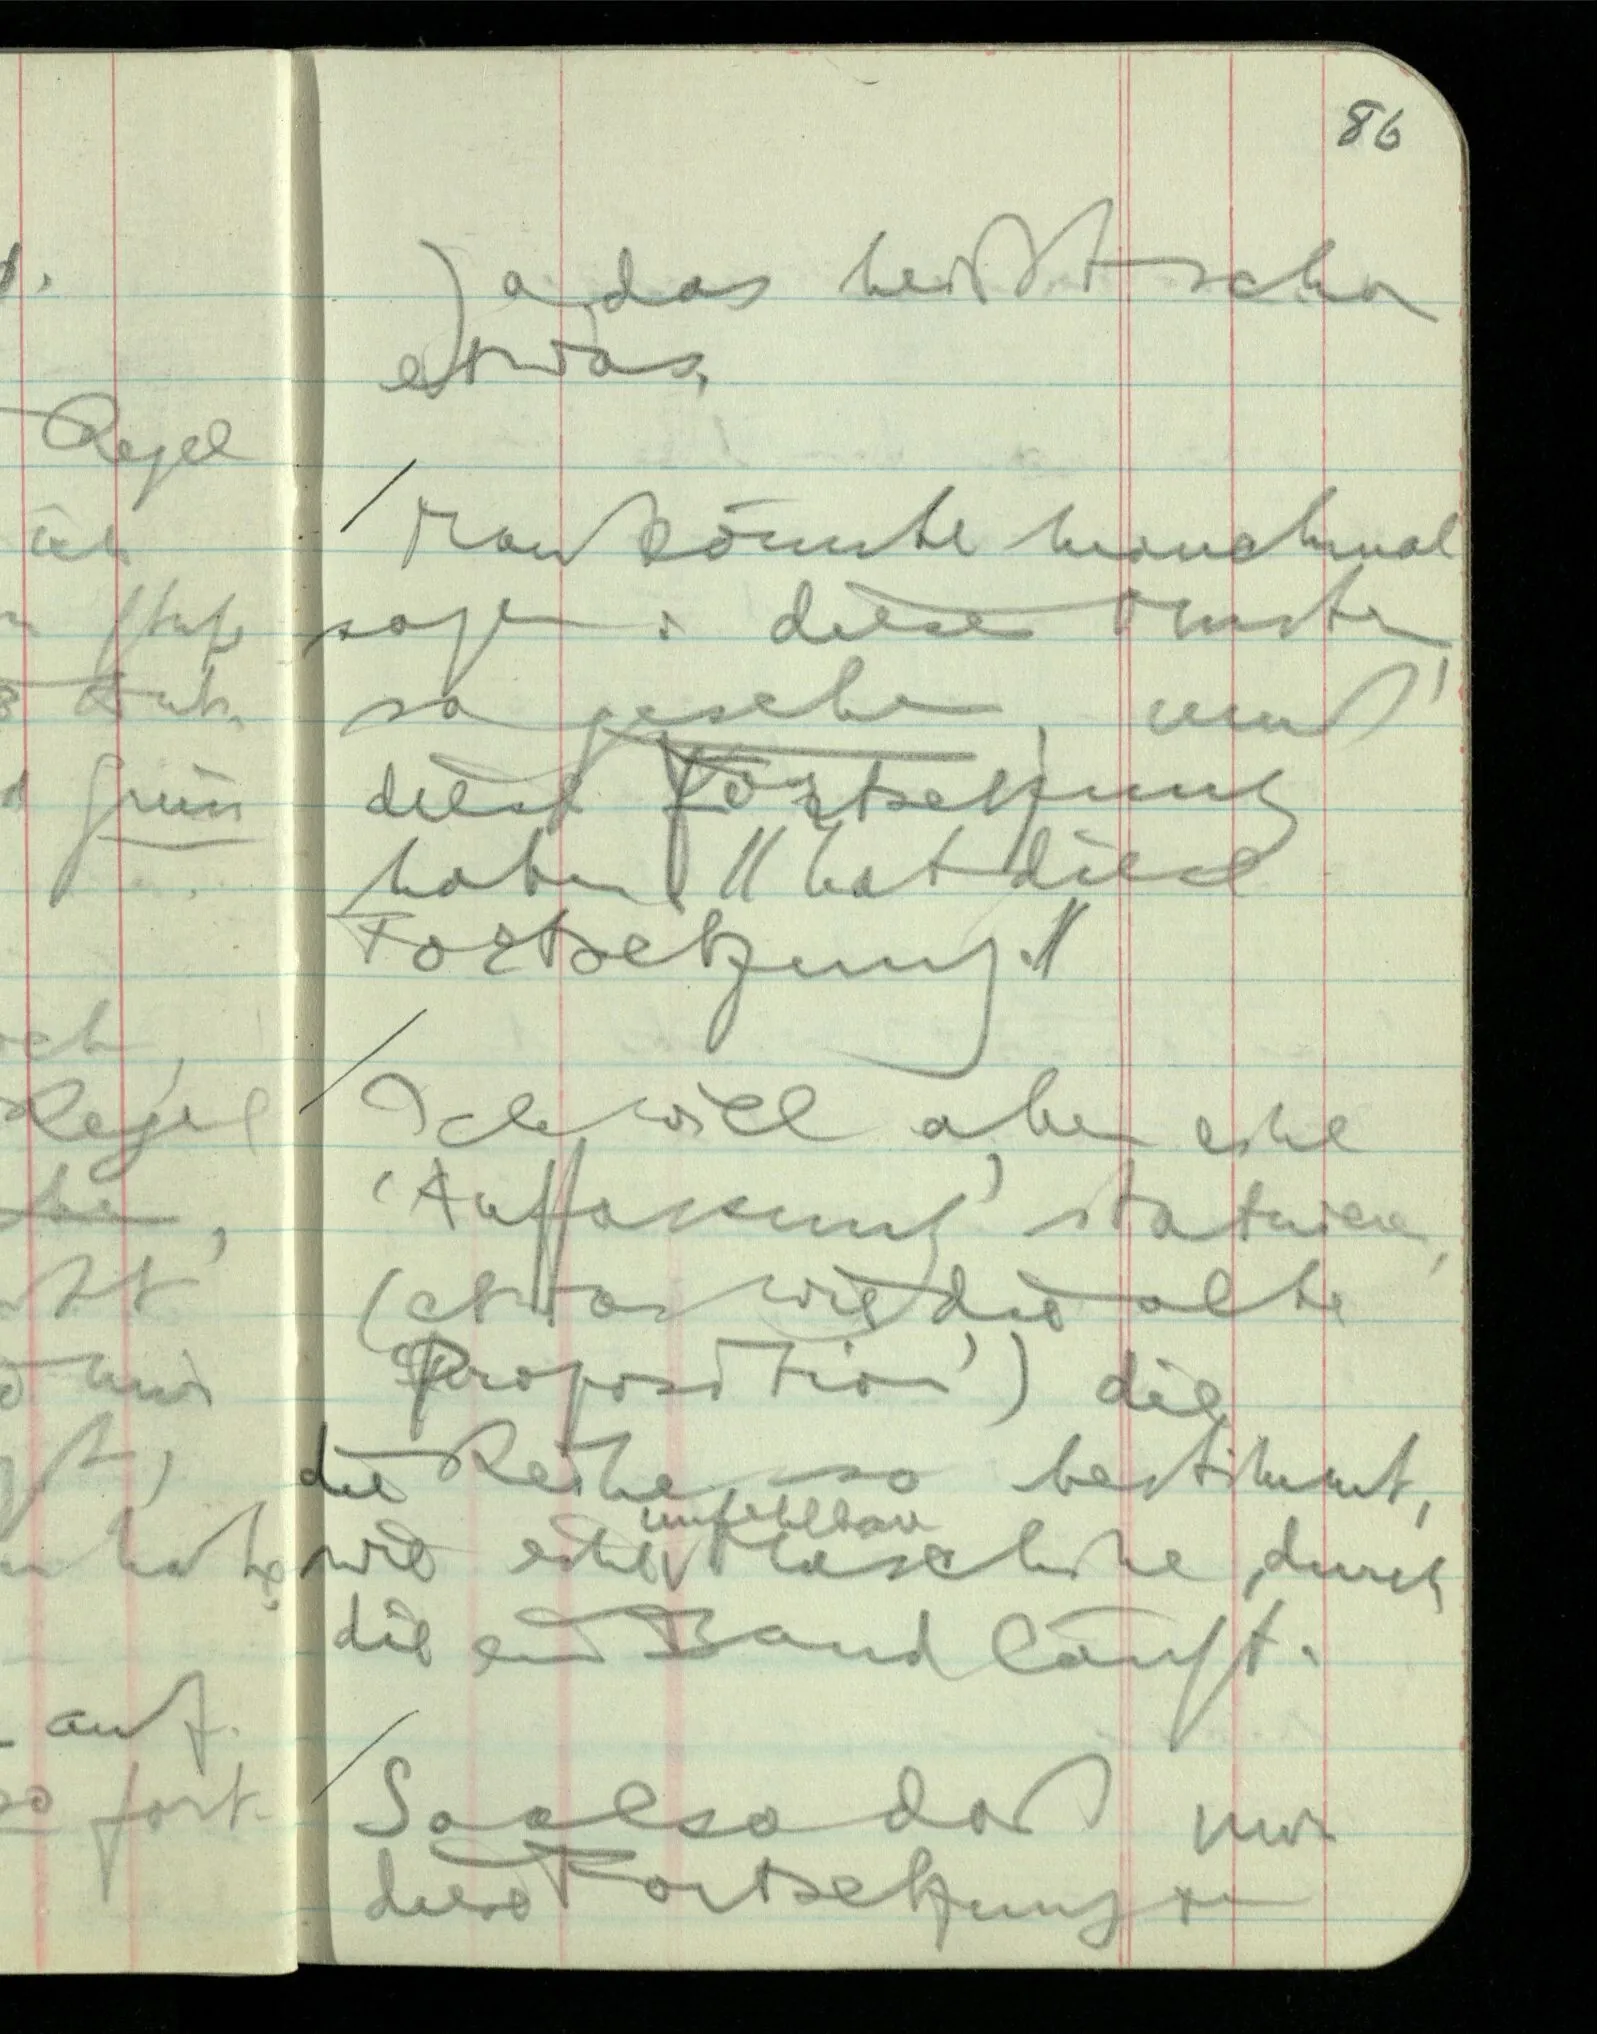 86
Ja das heißt schon
etwas.
/ Man könnte manchmal
sagen: dieses Muster,
so gesehen, muß
diese Fortsetzung
haben // hat diese
Fortsetzung. //
/ Ich will aber eine
‘Auffassung’ statuieren,
(etwas wie die alte
‘Proposition’) die
die Reihe so bestimmt,
wie eine unfehlbare Maschine, durch
die ein Band läuft.
/ So also daß nur
diese Fortsetzung zu
Regel
grün
Regel
auf.
so fort.